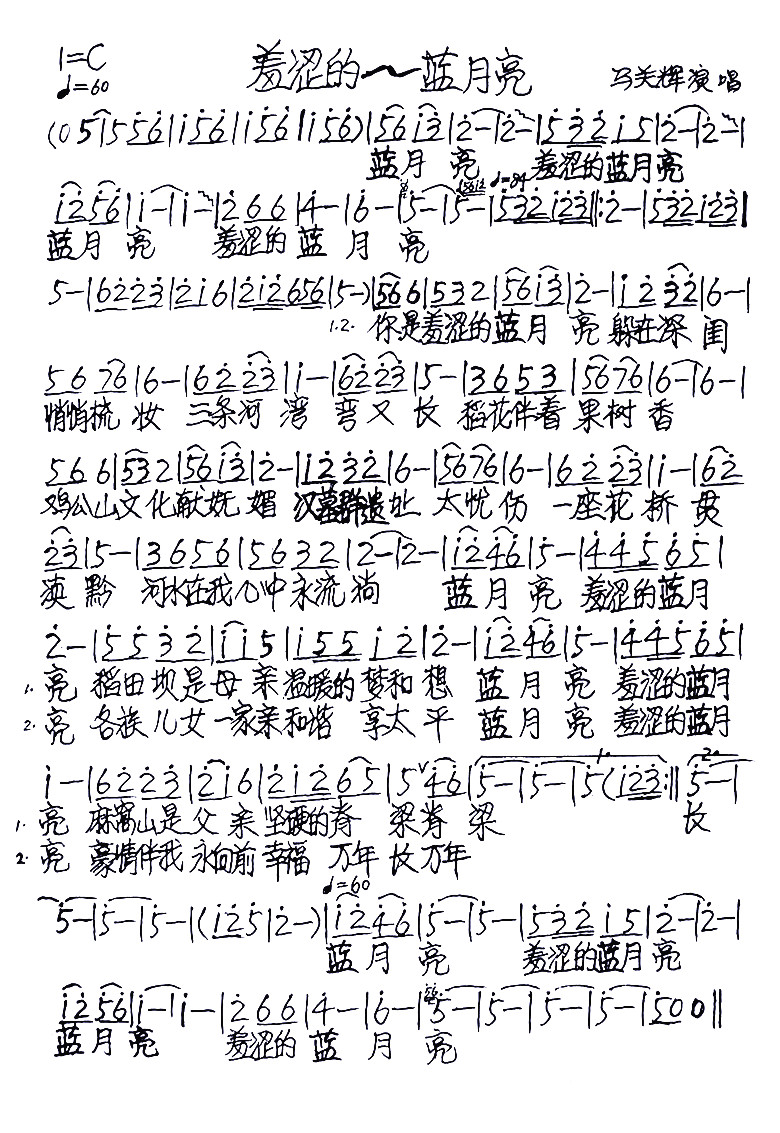 1=C
♩=60
羞涩的～蓝月亮
马关辉演唱
(0 5|5 5 6|i 5 6|i 5 6|i 5 6)|5 6 i 3|2-|2-|5 3 2 i 5|2-|2-|
蓝月亮 羞涩的蓝月亮
♩=84
i 2 5 6|i-|i-|2 6 6|4-|6-|5-|5-|5 3 2 i 2 3‖:2-|5 3 2 i 2 3|
蓝月亮 羞涩的蓝月亮
5-|6 2 2 3|2 i 6|2 i 2 6 5 6|5-)|5 6 6|5 3 2|5 6 i 3|2-|i 2 3 2|6-|
1.2. 你是羞涩的蓝月亮躲在深闺
5 6 7 6|6-|6 2 2 3|i-|6 2 2 3|5-|3 6 5 3|5 6 7 6|6-|6-|
悄悄梳妆 三条河湾弯又长 稻花伴着果树香
5 6 6|5 3 2|5 6 i 3|2-|i 2 3 2|6-|5 6 7 6|6-|6 2 2 3|i-|6 2
鸡公山文化献妩媚 汉墓群遗址太忧伤 一座花桥贯
2 3|5-|3 6 5 6|5 6 3 2|2-|2-|i 2 4 6|5-|4 4 5 6 5|
滇黔 河水在我心中永流淌 蓝月亮 羞涩的蓝月
2-|5 5 3 2|i i 5|i 5 5 i 2|2-|i 2 4 6|5-|4 4 5 6 5|
1. 亮 稻田坝是母亲温暖的梦和想 蓝月亮 羞涩的蓝月
2. 亮 各族儿女一家亲和谐享太平 蓝月亮 羞涩的蓝月
i-|6 2 2 3|2 i 6|2 i 2 6 5|5 ∨ 4 6|5-|5-|5(i 2 3:‖5-|
1. 亮 麻窝山是父亲坚硬的脊梁脊梁 长
2. 亮 豪情伴我永向前幸福万年长万年
♩=60
5-|5-|5-|(i 2 5|2-)|i 2 4 6|5-|5-|5 3 2 i 5|2-|2-|
蓝月亮 羞涩的蓝月亮
i 2 5 6|i-|i-|2 6 6|4-|6-|5-|5-|5-|5-|5 0 0‖
蓝月亮 羞涩的蓝月亮